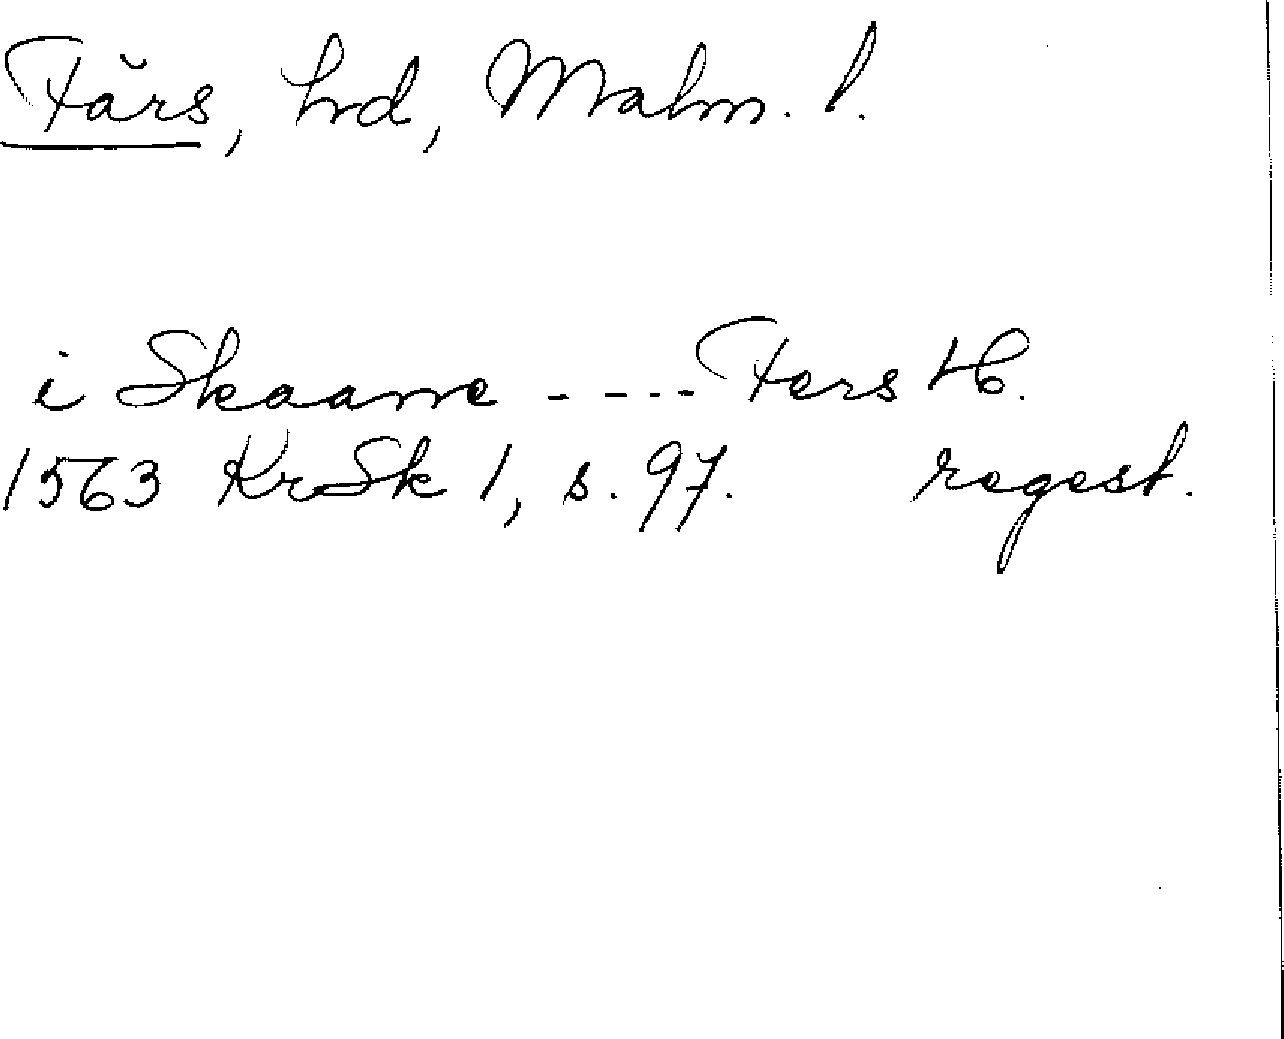 Färs, hrd, Malm. l.
i Skaanne ---- Fers H.
1563 KrSk 1, s. 97. regest.